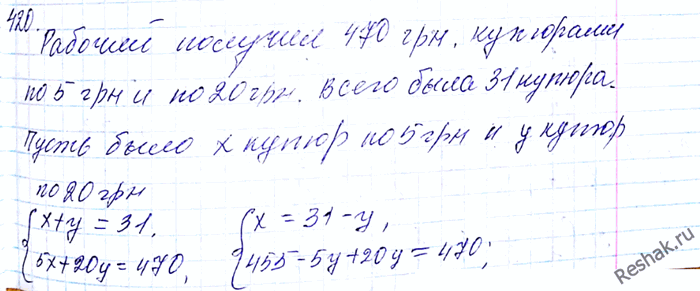 420.
Рабочий получил 470 грн. купюрами
по 5 грн и по 20 грн. Всего была 31 купюра.
Пусть было x купюр по 5 грн и y купюр
по 20 грн
{x+y=31, {x=31-y,
{5x+20y=470, {455-5y+20y=470;
Reshak.ru